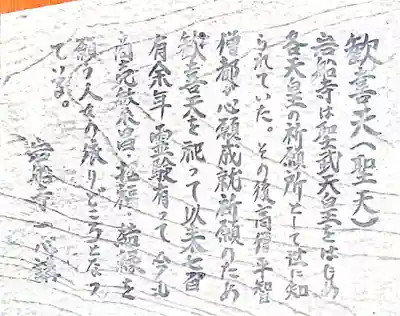 歓喜天(聖天)
岩船寺は聖武天皇をはじめ
各天皇の祈願所として世に知
られていた。その後、高僧平智
僧都が心願成就祈願のため
歓喜天を祀って以来七百
有余年霊験有って今も
商売繁昌、招福、結縁を
願う人々の依りどころとなっ
ている。
岩船寺一心講